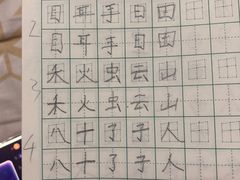 2 目 耳 手 日 田
目 耳 手 日 田
3 禾 火 虫 云 山
禾 火 虫 云 山
4 八 十 了 子 人
八 十 了 子 人